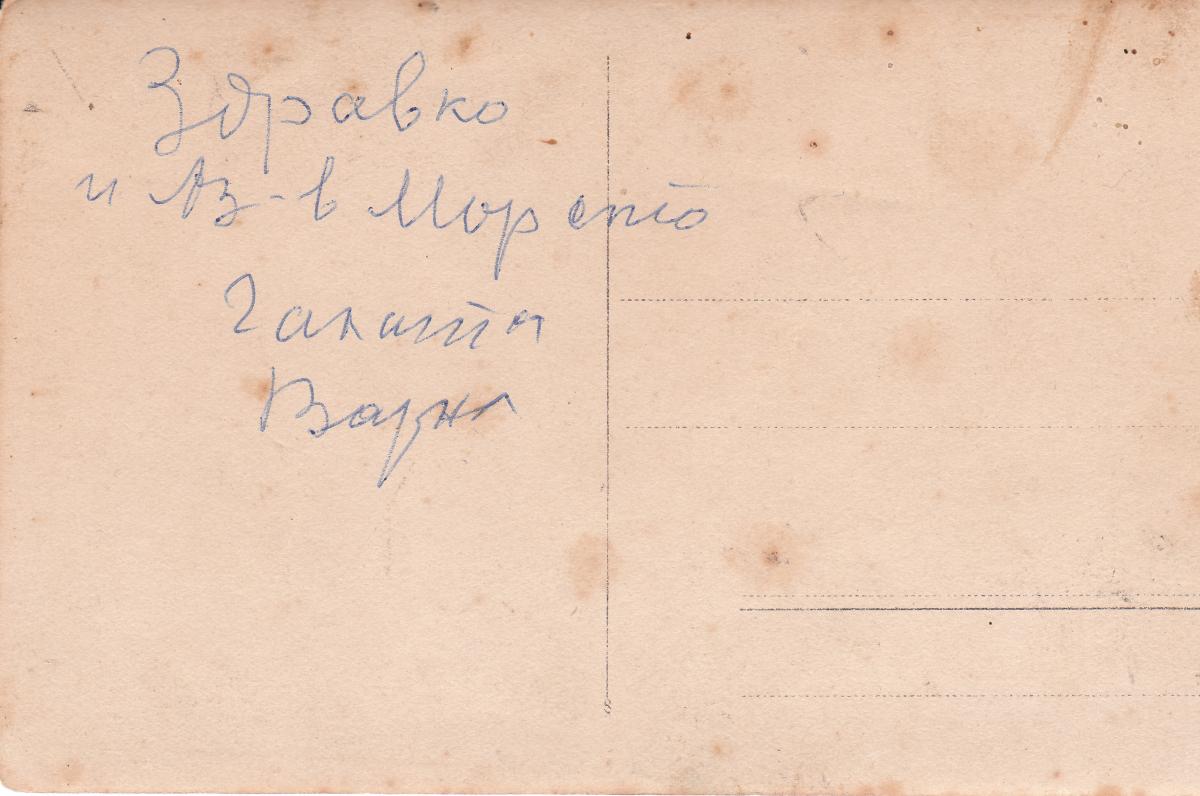 Здравко
и Аз - в Морето
Галата
Варна